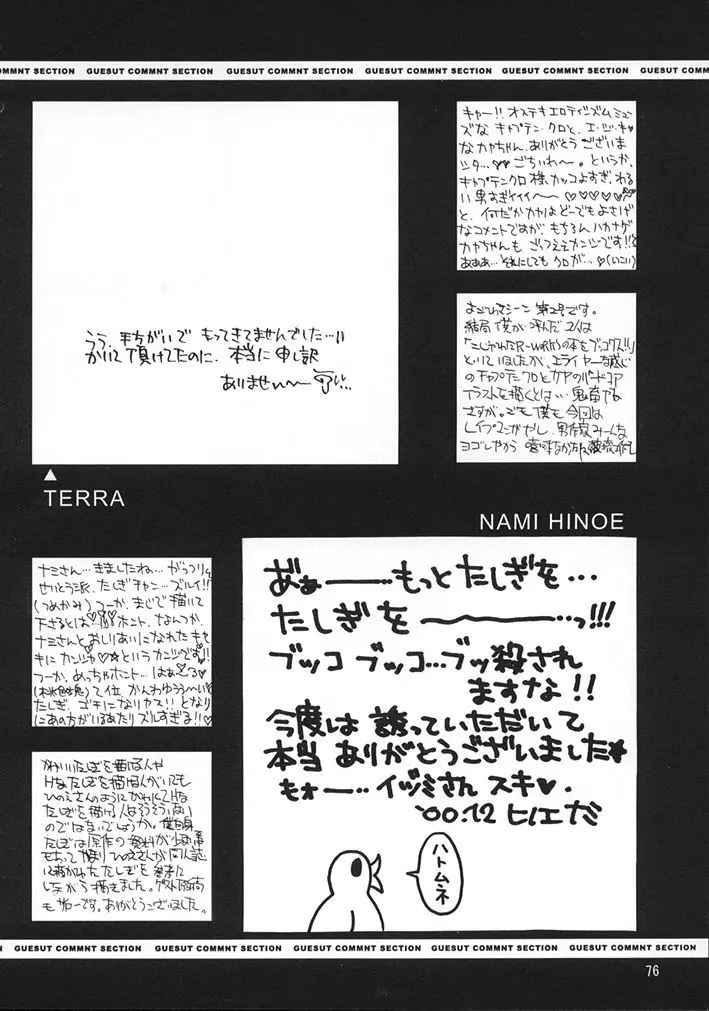 GUESUT COMMNT SECTION GUESUT COMMNT SECTION GUESUT COMMNT SECTION GUESUT COMMNT SECTION GUESUT COMM
うう、手ちがいで もってきてませんでした…!!
かいて頂けてたのに、本当に申し訳
ありませぇ〜〜
TERRA
キャー!! オステキエロティシズムミュー
ズな キャプテン・クロと、エ・ッ・キ♥
な カヤちゃん、ありがとう ございま
シタ…♥♥ ごちぃわ〜。というか、
キャプテンクロ様 カッコよすぎ、わる
い男すぎィィィ〜 ♡♡♡♡♡
と、何だかカヤは どーでもよさげ
なコメントですが、もちろん ハカナゲ
カヤちゃんも ごっつええカンジです!!
あぁぁ… それにしても クロが… ♡(いこい)
よごれてシーン 第2号です。
結局 僕が 呼んだ 2人は
といていましたが、エライヤーな感じ
のキャプテンクロとカヤのハードコア
イラストを描くとは… 鬼畜やな
さすが。でも 僕も 今回は
ヨゴレやから
NAMI HINOE
ナミさん… きましたね… がっつりv
せいとう派、たしぎチャン… ズルイ!!
(つめかみ) つーか、まじで 描いて
下さるとは… ホント、なんつか、
ナミさんと おしりあいになれた キセ
キに カンシャ♡☆という カンジです!!
つーか、めっちゃホント… はぁ〜
たしぎ、ゴチになりヤス!! となり
にあの方がいるあたり ズルすぎる!!♡
あぁ―――… もっと たしぎを…
たしぎを ―〜〜〜――…っ!!!
ブッコ ブッコ… ブッ殺され
ますな!!
今度は 誘っていただいて
本当 ありがとうございました★
もォー… イヅミさん スキ♥.
'00.12 ヒノエナミ
ハトムネ
かわいいたしぎを描ける人や
Hなたしぎを描ける人がいても
ひのえさんのようにかわいくてHな
たしぎを描ける人はそうそういない
のではないでしょうか。僕自身
たしぎは原作の資料が
しながら描きました。ゲスト原稿
ありがとうございました。
N GUESUT COMMNT SECTION GUESUT COMMNT SECTION GUESUT COMMNT SECTION GUESUT COMMNT SECTION GUESUT COMMNT SECTION
76